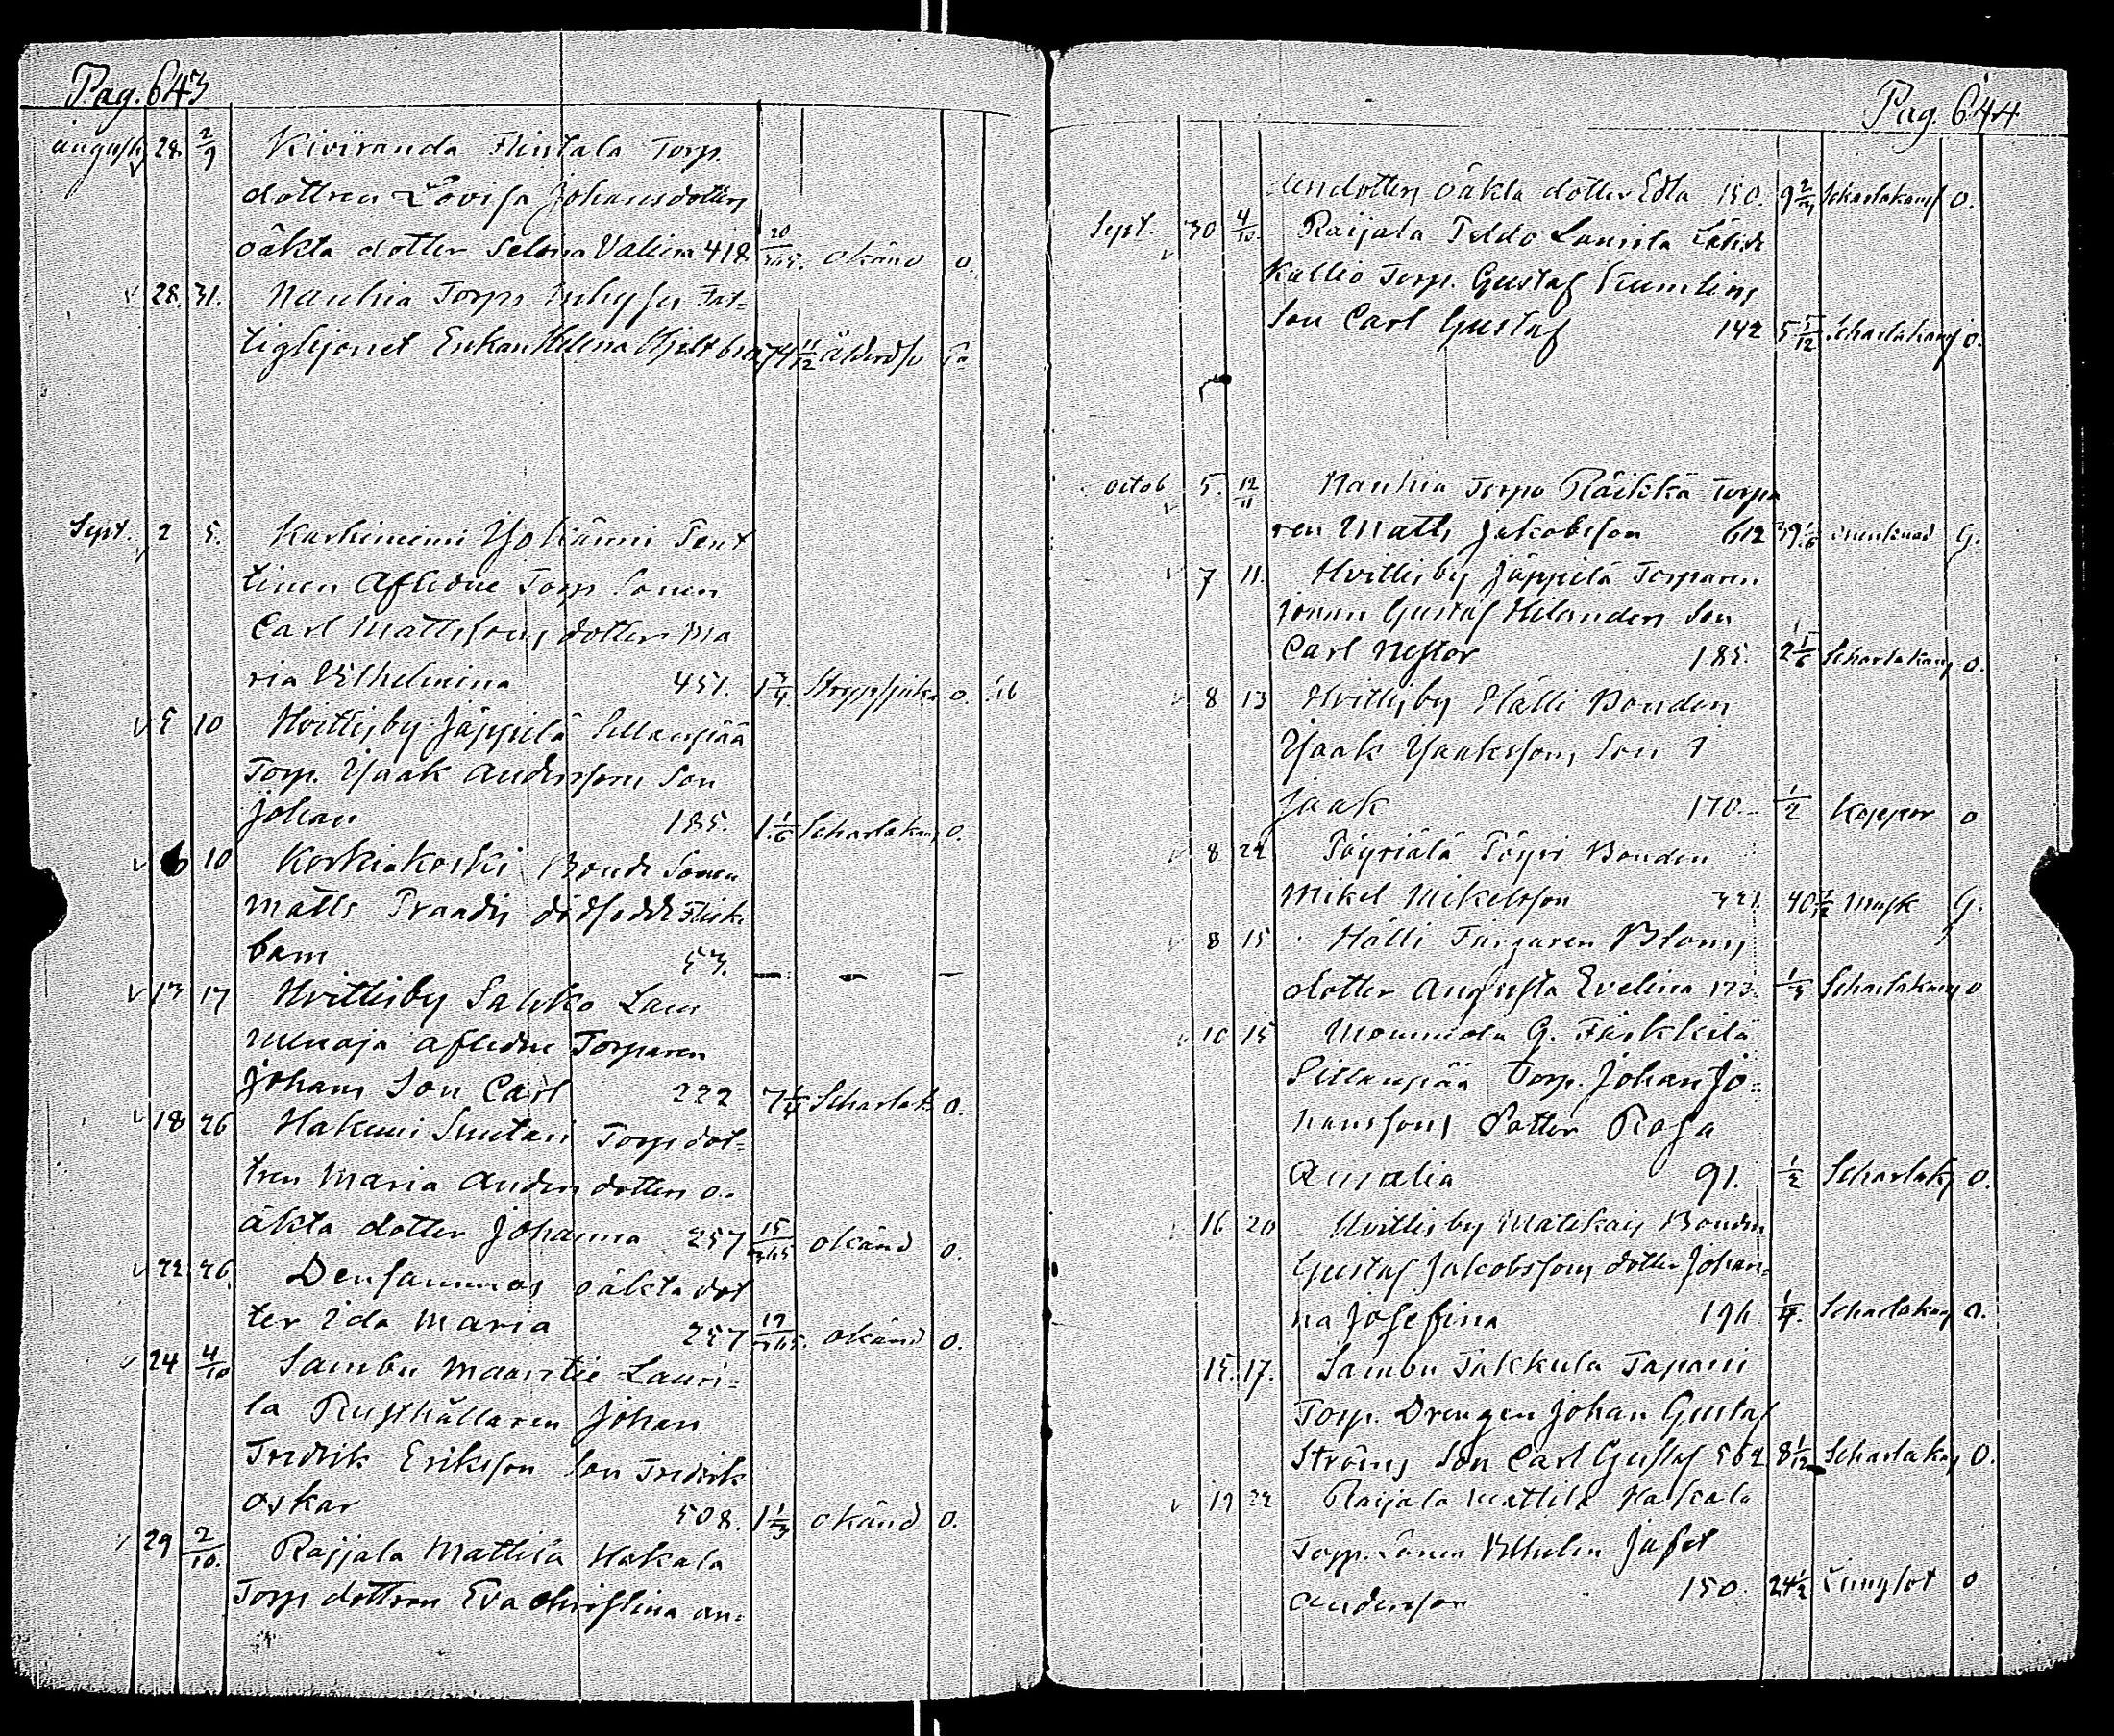 Pag. 643
august 28. 2/9 Kiviranda Flintala Torp.
dottren Lovisa Johansdotters
oäkta dotter Selma Vallina 418 20/365. okänd o.
28. 31. Nauhia Torpo Inhyses Fat-
tighjonet Enkan Helena Hjeltbro 74 11/12 Ålderdo
Sept. 2 5. Karhiniemi Yjokänni Pent
tinen Aflidne Torp Sonen
Carl Mattssons dotter Ma
ria Vilhelmina 451. 1 3/4. Strypsjuka o.
5 10 Hvittisby Jäppilä Sillanpää
Torp. Isaak Anderssons Son
Johan 185. 1 1/6 Scharlakans o.
6 10 Korkiakoski Bonde Sonen
Matts Praadis dödfödd Flick
barn 53. — — —
13 17 Hvittisby Sahko Lam
minaja Aflidne Torparen
Johans Son Carl 222 7 1/4 Scharlak o.
18 26 Hakuni Suutari Torp dot-
tren Maria Andersdotters o-
äkta dotter Johanna 257 15/365 okänd o.
22. 26. Densammas oäkta dot
ter Ida Maria 257 19/365. okänd o.
24 4/10 Sambu Maantie Lauri-
la Rusthållaren Johan
Fredrik Eriksson Son Fredrik
Oskar 508. 1 1/3 okänd o.
29 2/10. Raijala Mattila Hakala
Torp dottren Eva Christina an-
Pag. 644
dersdotters oäkta dotter Edla 150. 9 Scharlakans o.
Sept. 30 4/10. Raijala Peldo Laurila
Kallio Torp. Gustaf Kumlins
Son Carl Gustaf 142 5 5/12 Scharlakans o.
octob 5. 12/11 Nauhia Torpo Räikkä Torpa
ren Matts Jakobsson 612 39 1/6 G.
7 11. Hvittisby Jäppilä Torparen
Gustaf Helanders Son
Carl Nestor 185. 2 1/6 Scharlakans o.
8 13 Hvittisby Hälli Bonden
Isaak Isaakssons Son I
saak 170. 1/2 Koppor o
8 22 Pöyriälä Pöyri Bonden
Mikel Mikelsson 321 40 7/12 G.
8 15 Hälli Färgaren Bloms
dotter Augusta Evelina 173. 1/3 Scharlakans o
10 15 Mommola G. Färkkilä
Sillanpää Torp. Johan Jo-
hanssons Dotter Rosa
Amalia 91. 1/2 Scharlaks o.
16 20 Hvittisby Matikais Bonden
Gustaf Jakobssons dotter Johan-
na Josefina 196 1/4. Scharlakans o.
15. 17. Sambu Takkula Tapani
Torp. Drengen Johan Gustaf
Ströms Son Carl Gustaf 562 8 1/12 Scharlakans o.
19 22 Raijala Mattila Hakala
Torp. Sonen Vilhelm Jafet
Andersson 150. 24 1/2 Lungsot o